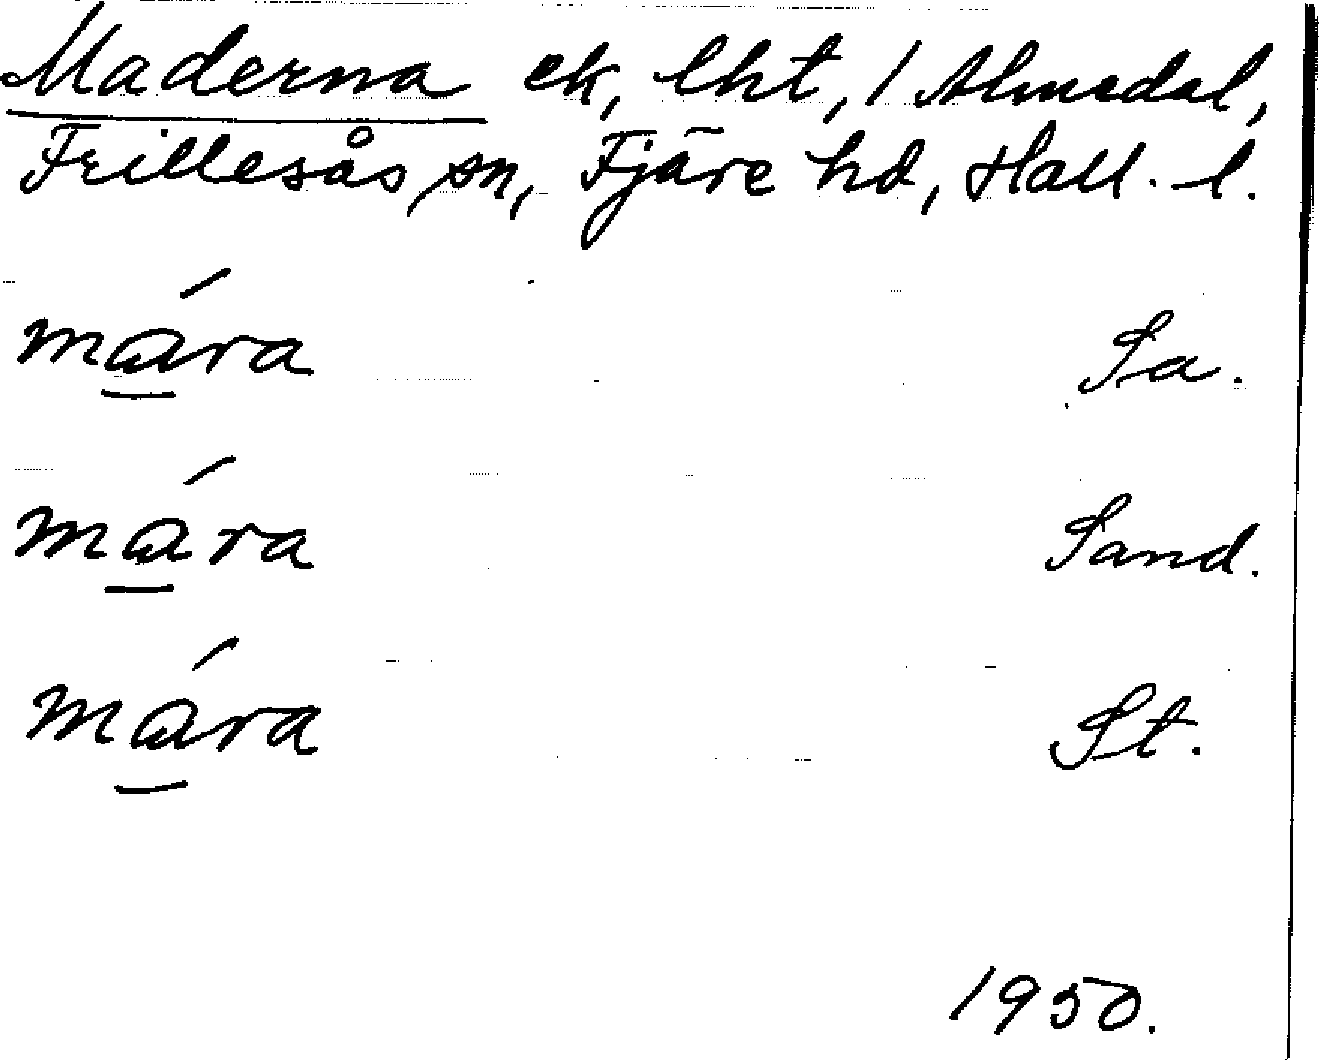 Maderna ek, lht, 1 Almedal,
Frillesås sn, Fjäre hd, Hall. l.
mára Sa.
mára Sand.
mára St.
1950.